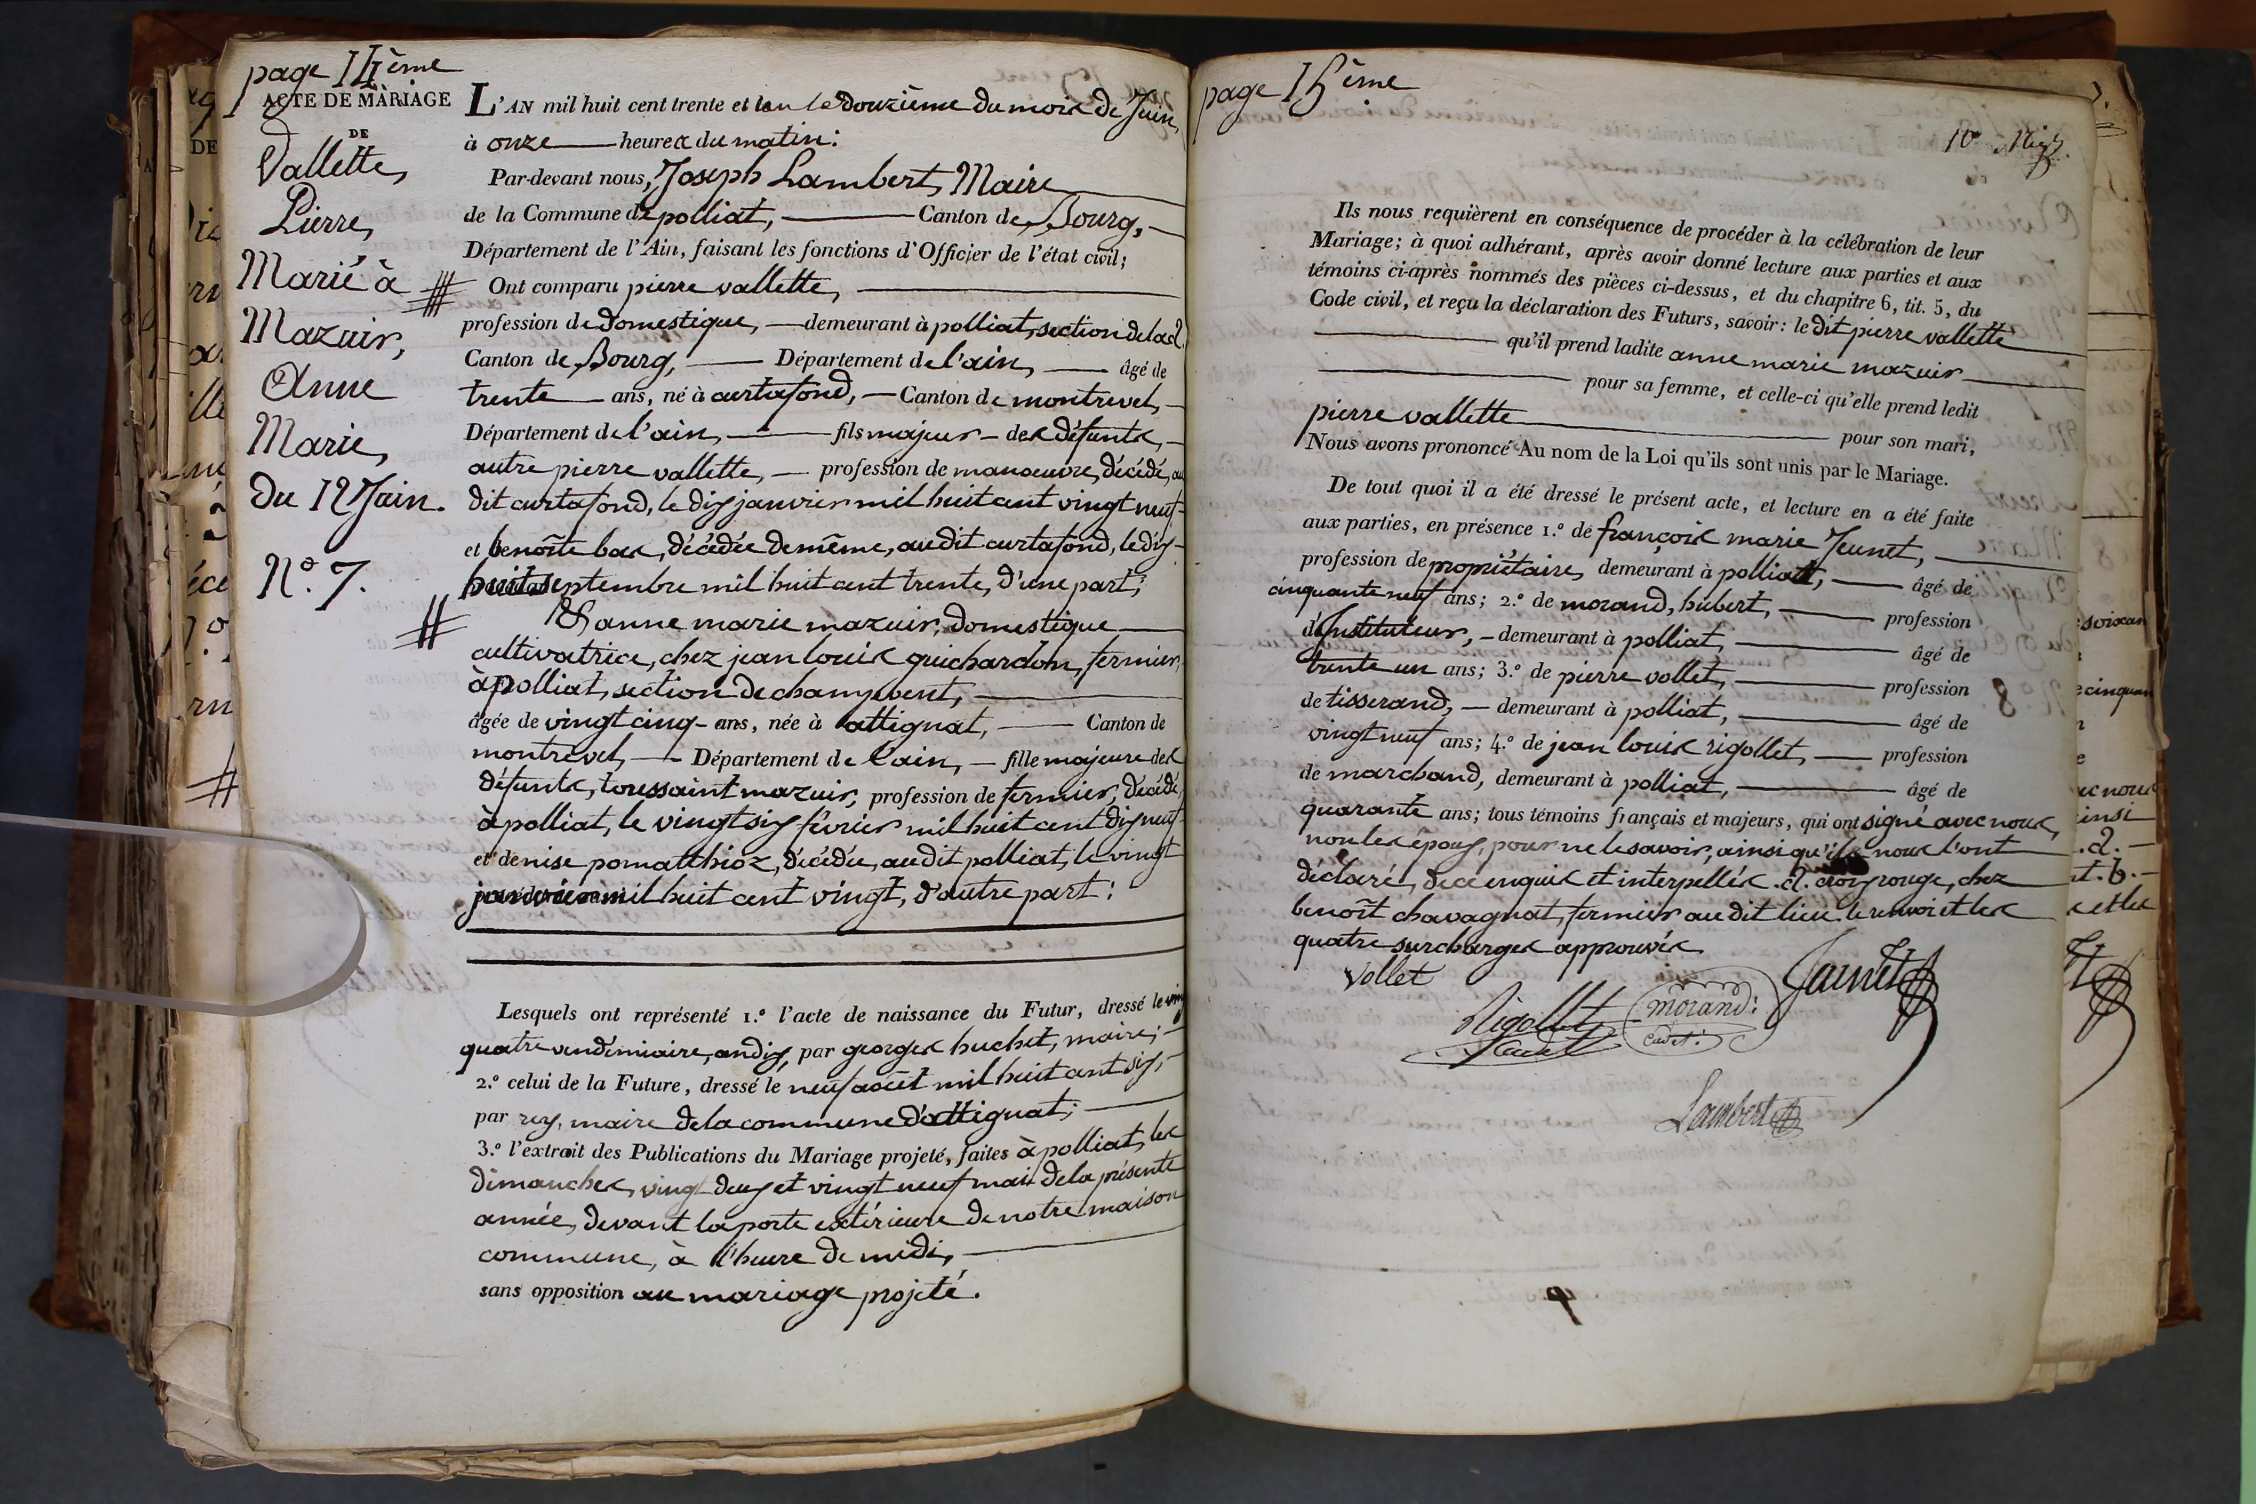 page 14ème
ACTE DE MARIAGE
DE
Vallette,
Pierre,
Marié à
Mazuir,
Anne
Marie,
du 12 Juin.
N.º 7.
L'AN mil huit cent trente et un le douzième du mois de Juin,
à onze heures du matin:
Par-devant nous, Joseph Lambert, Maire
de la Commune de polliat, Canton de Bourg,
Département de l'Ain, faisant les fonctions d'Officier de l'état civil;
Ont comparu pierre vallette,
profession de domestique, demeurant à polliat, section de la .a.
Canton de Bourg, Département de l'ain, âgé de
trente ans, né à curtafond, Canton de montrevel,
Département de l'ain, fils majeur des défunts,
autre pierre vallette, profession de manoeuvre, décédé, au
dit curtafond, le dix janvier mil huit cent vingt neuf
et benoîte bas, décédée de même, au dit curtafond, le dix
huit septembre mil huit cent trente, d'une part;
Et anne marie mazuir, domestique
cultivatrice, chez jean louis guichardon, fermier,
à Polliat, section de champvent,
âgée de vingt cinq ans, née à attignat, Canton de
montrevel, Département de l'ain, fille majeure des
défunts, toussaint mazuir, profession de fermier, décédé,
à polliat, le vingt six février mil huit cent dix neuf
et denise pomatthioz, décédée, au dit polliat, le vingt
janvier mil huit cent vingt, d'autre part:
Lesquels ont représenté 1.º l'acte de naissance du Futur, dressé le vingt
quatre vendémiaire, an dix, par georges huchet, maire;
2.º celui de la Future, dressé le neuf août mil huit cent six,
par rey, maire de la commune d'attignat;
3.º l'extrait des Publications du Mariage projeté, faites à polliat, les
dimanches, vingt deux et vingt neuf mai de la présente
année, devant la porte extérieure de notre maison
commune, à l'heure de midi,
sans opposition au mariage projeté.
page 15ème
10
Ils nous requièrent en conséquence de procéder à la célébration de leur
Mariage; à quoi adhérant, après avoir donné lecture aux parties et aux
témoins ci-après nommés des pièces ci-dessus, et du chapitre 6, tit. 5, du
Code civil, et reçu la déclaration des Futurs, savoir: le dit pierre vallette
qu'il prend ladite anne marie mazuir
pour sa femme, et celle-ci qu'elle prend ledit
pierre vallette pour son mari,
Nous avons prononcé Au nom de la Loi qu'ils sont unis par le Mariage.
De tout quoi il a été dressé le présent acte, et lecture en a été faite
aux parties, en présence 1.º de françois marie Jeunet,
profession de propriétaire, demeurant à polliat, âgé de
cinquante neuf ans; 2.º de morand, hubert, profession
d'Instituteur, demeurant à polliat, âgé de
trente un ans; 3.º de pierre vollet, profession
de tisserand, demeurant à polliat, âgé de
vingt neuf ans; 4.º de jean louis rigollet, profession
de marchand, demeurant à polliat, âgé de
quarante ans; tous témoins français et majeurs, qui ont signé avec nous,
non les époux, pour ne le savoir, ainsi qu'ils nous l'ont
déclaré, de ce enquis et interpellés .a. croix rouge, chez
benoît chavagnat, fermier au dit lieu. le renvoi et les
quatre surcharges approuvés
Vollet
Rigollet
Cadet
morand:
Cadet.
Jeunet
Lambert